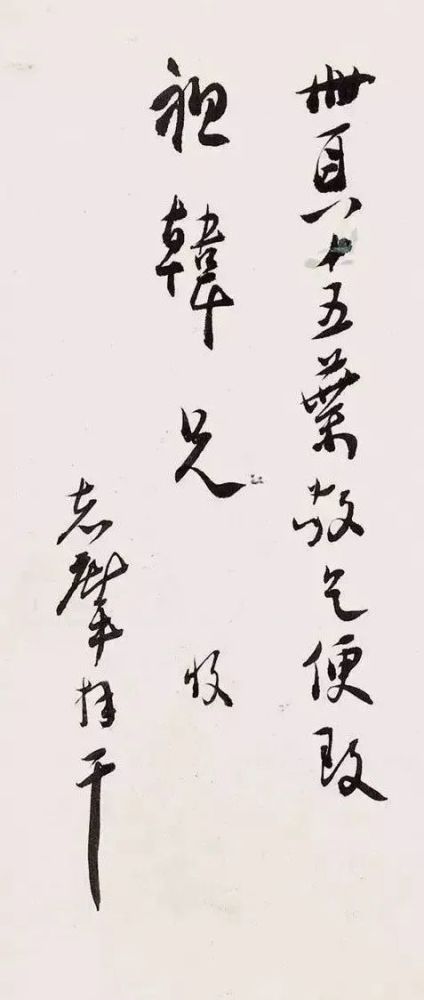 冊頁十五葉敬乞便致
祖韓兄 收
志摩拜干